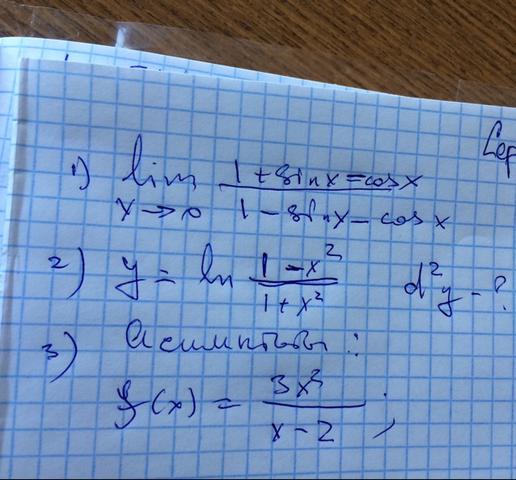 1) lim x→0 (1 + sin x - cos x)/(1 - sin x - cos x)
2) y = ln (1 - x²)/(1 + x²) d²y - ?
3) Асимптоты:
f(x) = 3x²/(x - 2) ;